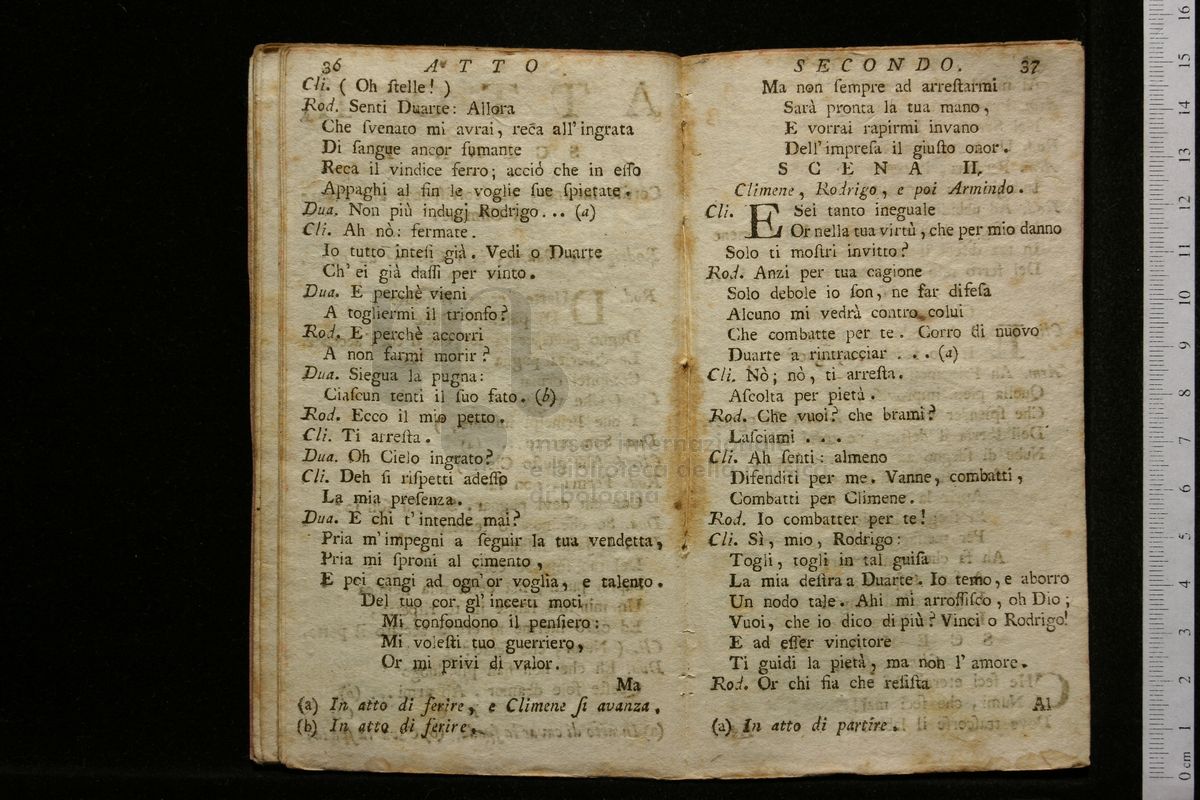 36 ATTO
Cli. ( Oh ſtelle! )
Rod. Senti Duarte: Allora
Che ſvenato mi avrai, reca all' ingrata
Di ſangue ancor fumante
Reca il vindice ferro; acciò che in eſſo
Appaghi al fin le voglie ſue ſpietate.
Dua. Non più indugj Rodrigo... (a)
Cli. Ah nò: fermate.
Io tutto inteſi già. Vedi o Duarte
Ch' ei già daſſi per vinto.
Dua. E perchè vieni
A togliermi il trionfo?
Rod. E perchè accorri
A non farmi morir?
Dua. Siegua la pugna:
Ciaſcun tenti il ſuo fato. (b)
Rod. Ecco il mio petto.
Cli. Ti arreſta.
Dua. Oh Cielo ingrato?
Cli. Deh ſi riſpetti adeſſo
La mia preſenza.
Dua. E chi t' intende mai?
Pria m' impegni a ſeguir la tua vendetta,
Pria mi ſproni al cimento,
E poi cangi ad ogn' or voglia, e talento.
Del tuo cor gl' incerti moti
Mi confondono il penſiero:
Mi voleſti tuo guerriero,
Or mi privi di valor.
Ma
(a) In atto di ferire, e Climene ſi avanza.
(b) In atto di ferire.
SECONDO. 37
Ma non ſempre ad arreſtarmi
Sarà pronta la tua mano,
E vorrai rapirmi invano
Dell' impreſa il giuſto onor.
SCENA II.
Climene, Rodrigo, e poi Armindo.
Cli. E Sei tanto ineguale
Or nella tua virtù, che per mio danno
Solo ti moſtri invitto?
Rod. Anzi per tua cagione
Solo debole io ſon, ne far difeſa
Alcuno mi vedrà contro colui
Che combatte per te. Corro di nuovo
Duarte a rintracciar... (a)
Cli. Nò; nò, ti arreſta.
Aſcolta per pietà.
Rod. Che vuoi? che brami?
Laſciami...
Cli. Ah ſenti: almeno
Difenditi per me. Vanne, combatti,
Combatti per Climene.
Rod. Io combatter per te!
Cli. Sì, mio, Rodrigo:
Togli, togli in tal guiſa
La mia deſtra a Duarte. Io temo, e aborro
Un nodo tale. Ahi mi arroſſiſco, oh Dio;
Vuoi, che io dico di più? Vinci o Rodrigo!
E ad eſſer vincitore
Ti guidi la pietà, ma non l' amore.
Rod. Or chi fia che reſiſta
Al
(a) In atto di partire.
museo internazionale
e biblioteca della musica
di bologna
0 cm 1 2 3 4 5 6 7 8 9 10 11 12 13 14 15 16